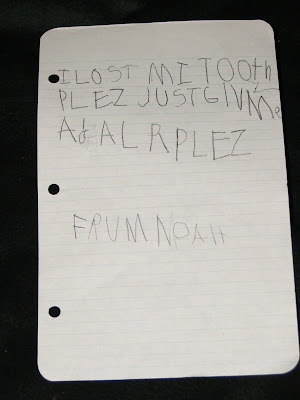 I LOST MI TOOth
PLEZ JUST GIV Me
A d AL R PLEZ
FRUM NOAH